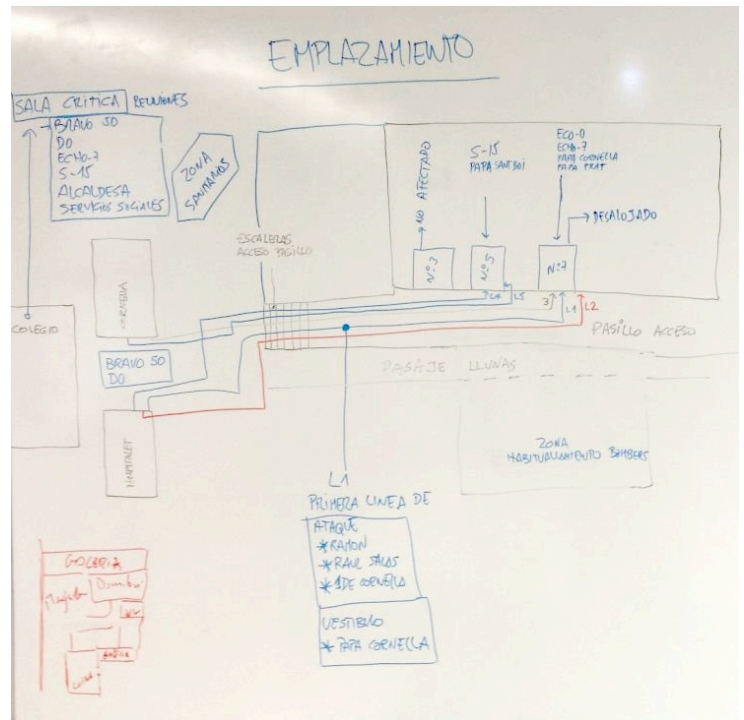 EMPLAZAMIENTO
SALA CRITICA REUNIONES
BRAVO 50
DO
ECHO-7
S-15
ALCALDESA
SERVICIOS SOCIALES
ZONA
SANITARIOS
ESCALERAS
ACCESO PASILLO
NO AFECTADO
S-15
PAPA SANT BOI
ECO-0
ECHO-7
PAPA CORNELLA
PAPA PRAT
DESALOJADO
Nº3
Nº5
Nº7
L4
L5
3
L1
L2
CORNELLA
COLEGIO
BRAVO 50
DO
HOSPITALET
PASILLO ACCESO
PASAJE LLUNAS
ZONA
HABITUALLAMIENTO BOMBERS
L1
PRIMERA LINEA DE
ATAQUE
* RAMON
* RAUL SALAS
* 1 DE CORNELLA
VESTIBULO
* PAPA CORNELLA